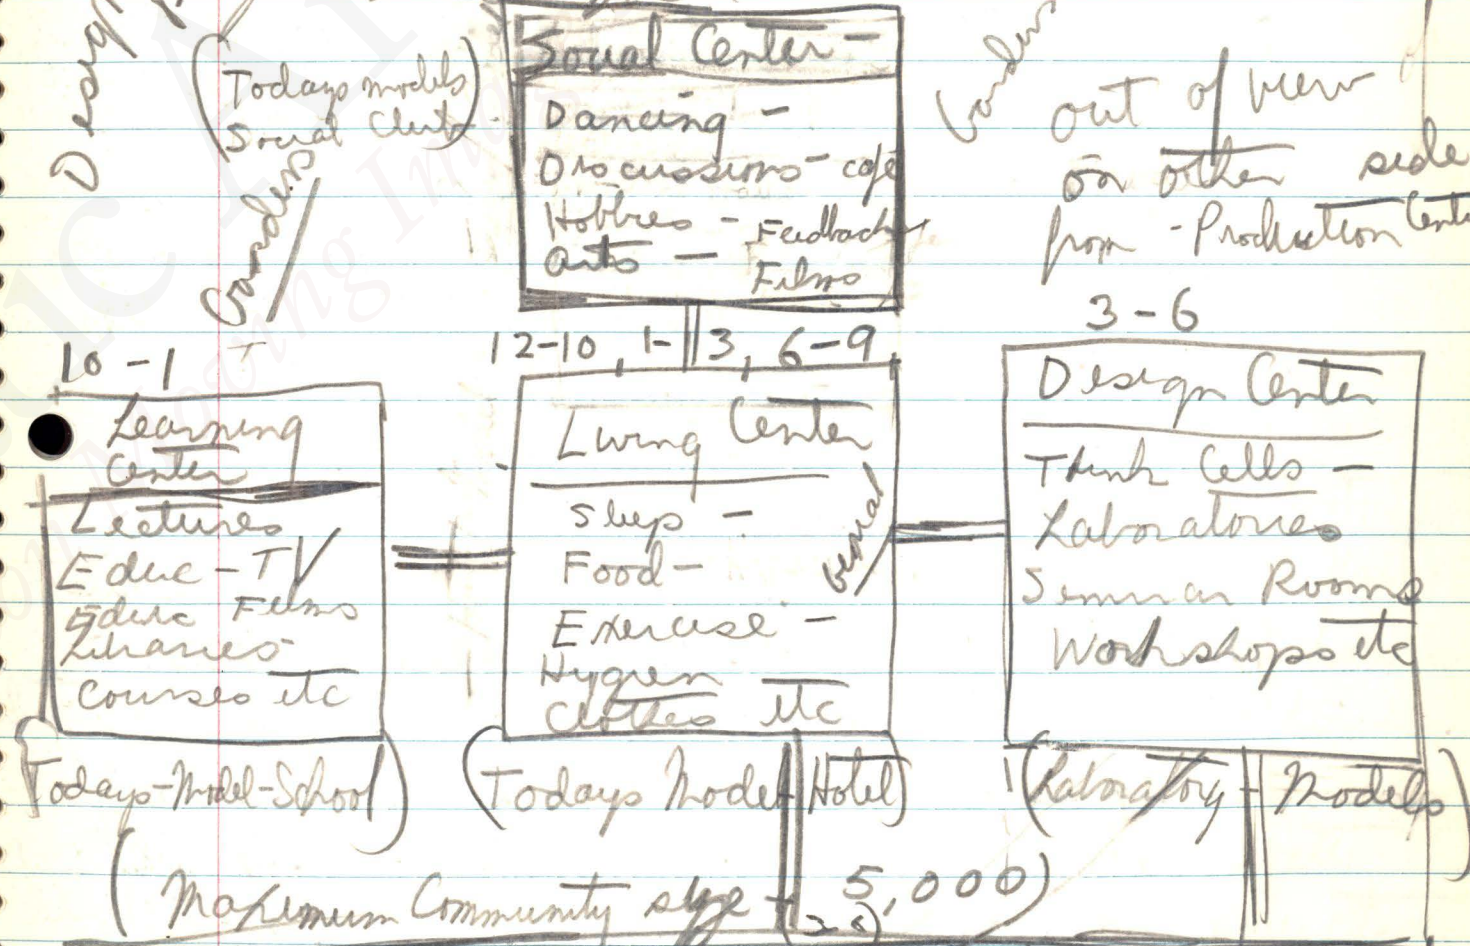 Design
(Todays models
Social Clubs -
Gardens
Social Center -
Dancing -
Discussions - cafe
Hobbies - Feedback
Arts - Films
Gardens
out of view
on other side
from - Production Center
10 - 1
Learning
Center
Lectures
Educ - TV
Educ Films
Libraries
courses etc
(Todays - Model - School)
12-10, 1- 3, 6-9,
Living Center
Sleep -
Food -
Exercise -
Hygien
Clothes etc
(Todays Model Hotel)
3 - 6
Design Center
Think Cells -
Laboratories
Seminar Rooms
Workshops etc
(Laboratory - Models)
(Maximum Community size - 5,000)